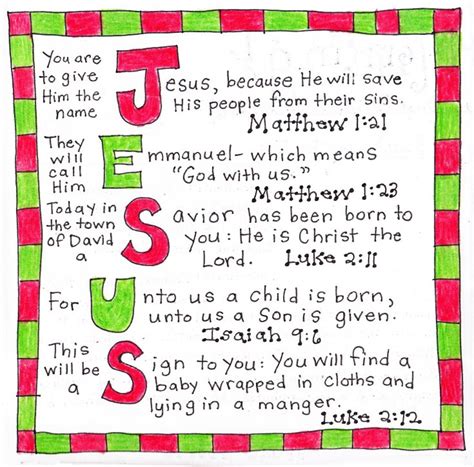 You are to give Him the name Jesus, because He will save
His people from their sins.
Matthew 1:21
They will call Him Emmanuel- which means
"God with us."
Matthew 1:23
Today in the town of David a Savior has been born to
you: He is Christ the
Lord. Luke 2:11
For Unto us a child is born,
unto us a Son is given.
Isaiah 9:6
This will be a Sign to you: You will find a
baby wrapped in cloths and
lying in a manger.
Luke 2:12